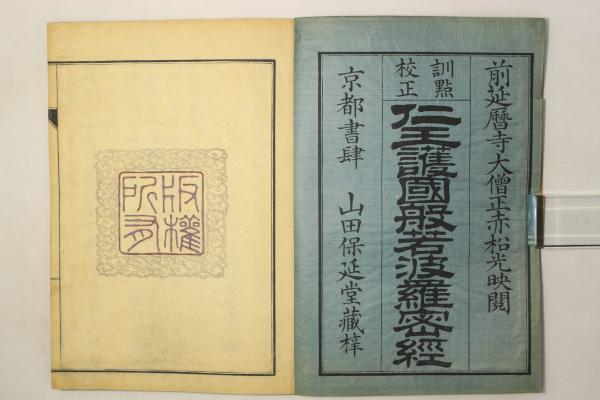 前延暦寺大僧正赤松光映閲
訓點
校正
仁王護國般若波羅密經
京都書肆 山田保延堂藏梓
版權
所有